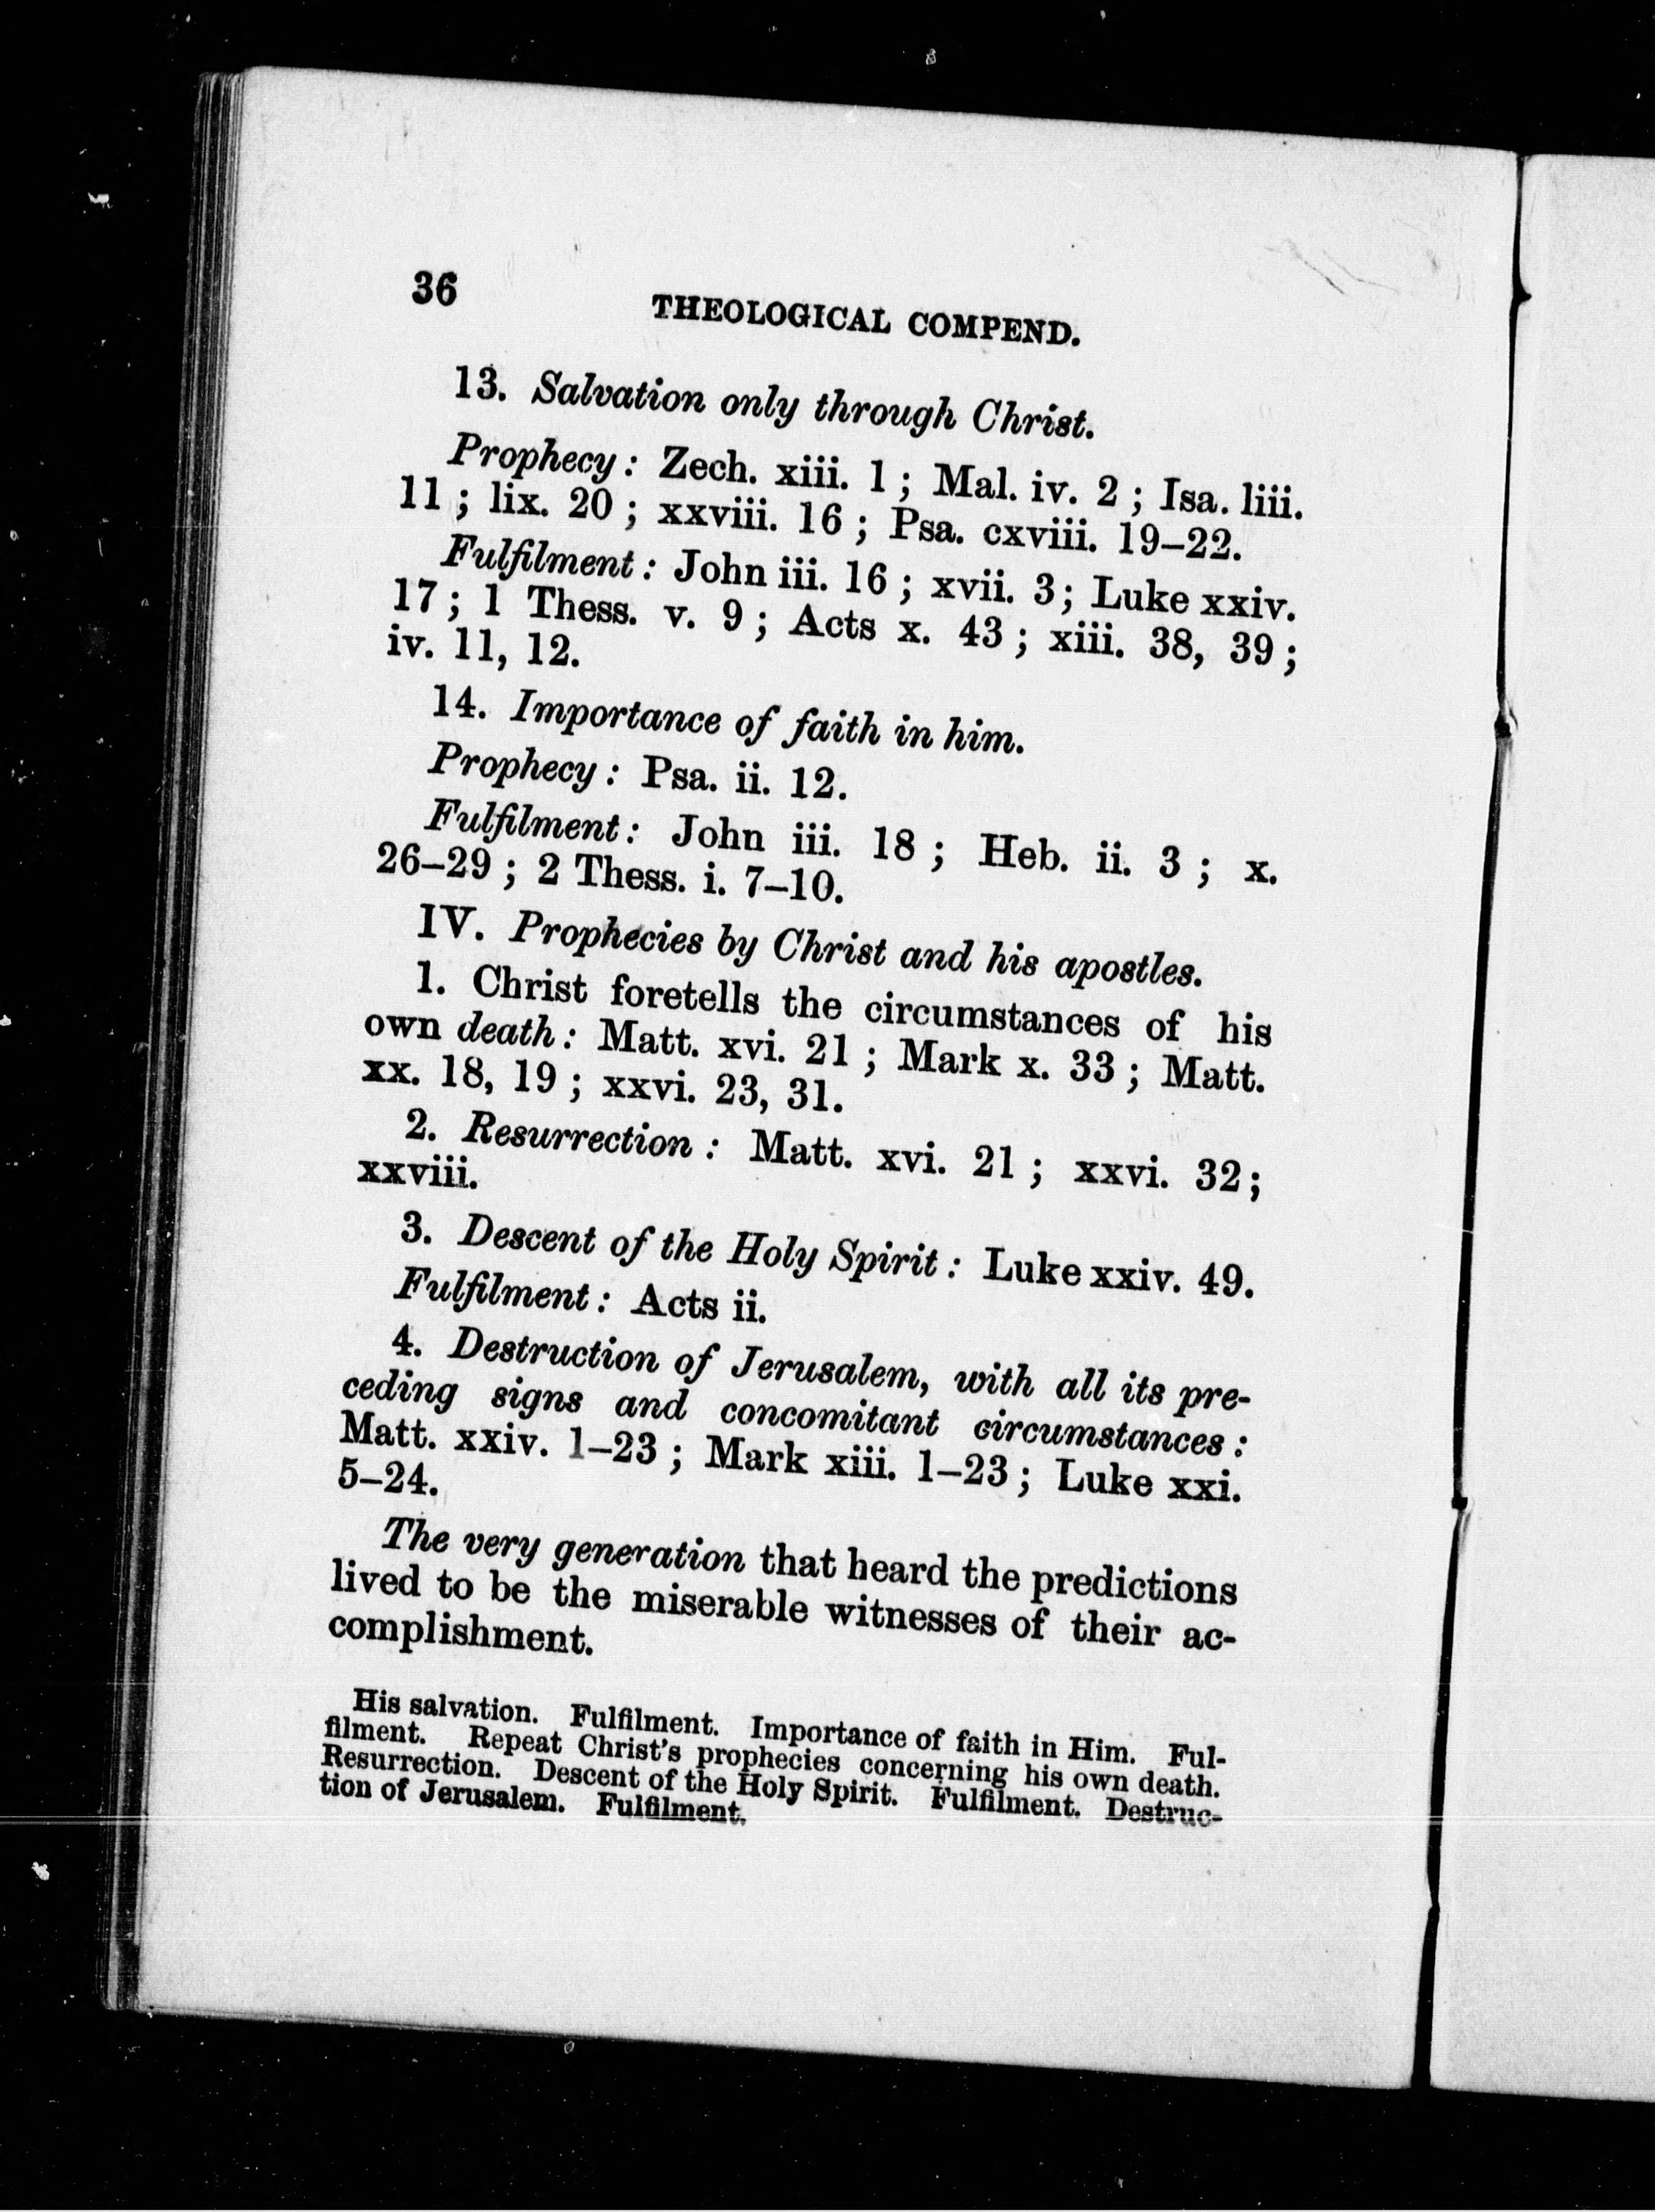 36
THEOLOGICAL COMPEND.
13. Salvation only through Christ.
Prophecy : Zech. xiii. 1 ; Mal. iv. 2 ; Isa. liii.
11 ; lix. 20 ; xxviii. 16 ; Psa. cxviii. 19–22.
Fulfilment : John iii. 16 ; xvii. 3 ; Luke xxiv.
17 ; 1 Thess. v. 9 ; Acts x. 43 ; xiii. 38, 39 ;
iv. 11, 12.
14. Importance of faith in him.
Prophecy : Psa. ii. 12.
Fulfilment : John iii. 18 ; Heb. ii. 3 ; x.
26–29 ; 2 Thess. i. 7–10.
IV. Prophecies by Christ and his apostles.
1. Christ foretells the circumstances of his
own death : Matt. xvi. 21 ; Mark x. 33 ; Matt.
xx. 18, 19 ; xxvi. 23, 31.
2. Resurrection : Matt. xvi. 21 ; xxvi. 32 ;
xxviii.
3. Descent of the Holy Spirit : Luke xxiv. 49.
Fulfilment : Acts ii.
4. Destruction of Jerusalem, with all its pre-
ceding signs and concomitant circumstances :
Matt. xxiv. 1–23 ; Mark xiii. 1–23 ; Luke xxi.
5–24.
The very generation that heard the predictions
lived to be the miserable witnesses of their ac-
complishment.
His salvation. Fulfilment. Importance of faith in Him. Ful-
filment. Repeat Christ's prophecies concerning his own death.
Resurrection. Descent of the Holy Spirit. Fulfilment. Destruc-
tion of Jerusalem. Fulfilment.